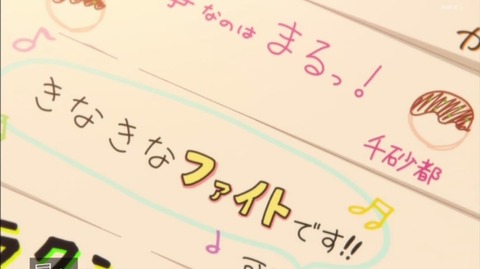 なのは まるっ!
か
千砂都
きなきなファイトです!!
ラクション